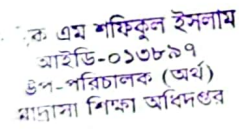 ক এম শফিকুল ইসলাম
আইডি-০১৩৮৯৭
উপ-পরিচালক (অর্থ)
মাদ্রাসা শিক্ষা অধিদপ্তর